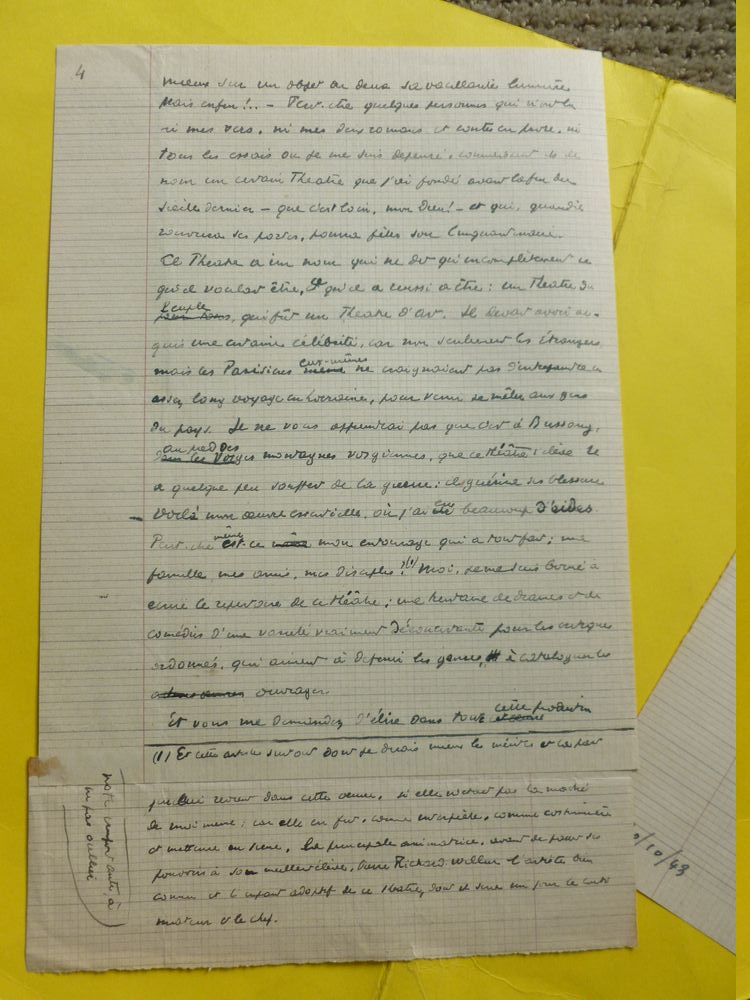 4
mieux sur un objet ou deux sa vacillante lumière
Mais enfin!.. — Peut-être quelques personnes qui n'ont lu
ni mes vers, ni mes deux romans et contes en prose, ni
tous les essais où je me suis dépensé, connaissent de
nom un certain Théâtre que j'ai fondé avant la fin du
siècle dernier — que c'est loin, mon Dieu! — et qui, quand il
rouvrira ses portes, pourra fêter son cinquantenaire.
Ce Théâtre a un nom qui ne dit qu'incomplètement ce
qu'il voulait être, et qu'il a réussi à être: un Théâtre du
Peuple
, qui fût un Théâtre d'Art. Il devait avoir ac-
quis une certaine célébrité, car non seulement les Étrangers
mais les Parisiens eux-mêmes ne craignaient pas d'entreprendre un
assez long voyage en Lorraine, pour venir se mêler aux gens
du pays. Je ne vous apprendrai pas que c'est à Bussang,
au pied des
montagnes vosgiennes, que ce théâtre
a quelque peu souffert de la guerre: il guérira ses blessures
Voilà mon œuvre essentielle, où j'ai eu beaucoup d'aides.
Peut-être même est-ce mon entourage qui a tout fait; ma
famille, mes amis, mes disciples (1) Moi, je me suis borné à
écrire le répertoire de ce théâtre; une trentaine de drames et de
comédies d'une variété vraiment déconcertante pour les critiques
ordonnés, qui aiment à définir les genres, à cataloguer les
ouvrages
Et vous me demandez d'élire dans toute cette production
(1) Et cette artiste surtout dont je dirais mieux les mérites et la part
qui lui revient dans cette œuvre, si elle n'était pas la moitié
de moi-même; car elle en fut, comme interprète, comme costumière
et metteuse en scène, la principale animatrice, avant de passer ses
pouvoirs à son meilleur élève, Pierre Richard-Willm l'artiste bien
connu et l'enfant adoptif de ce théâtre, dont il sera un jour le
et le chef.
note importante, à
ne pas oublier
10/10/43